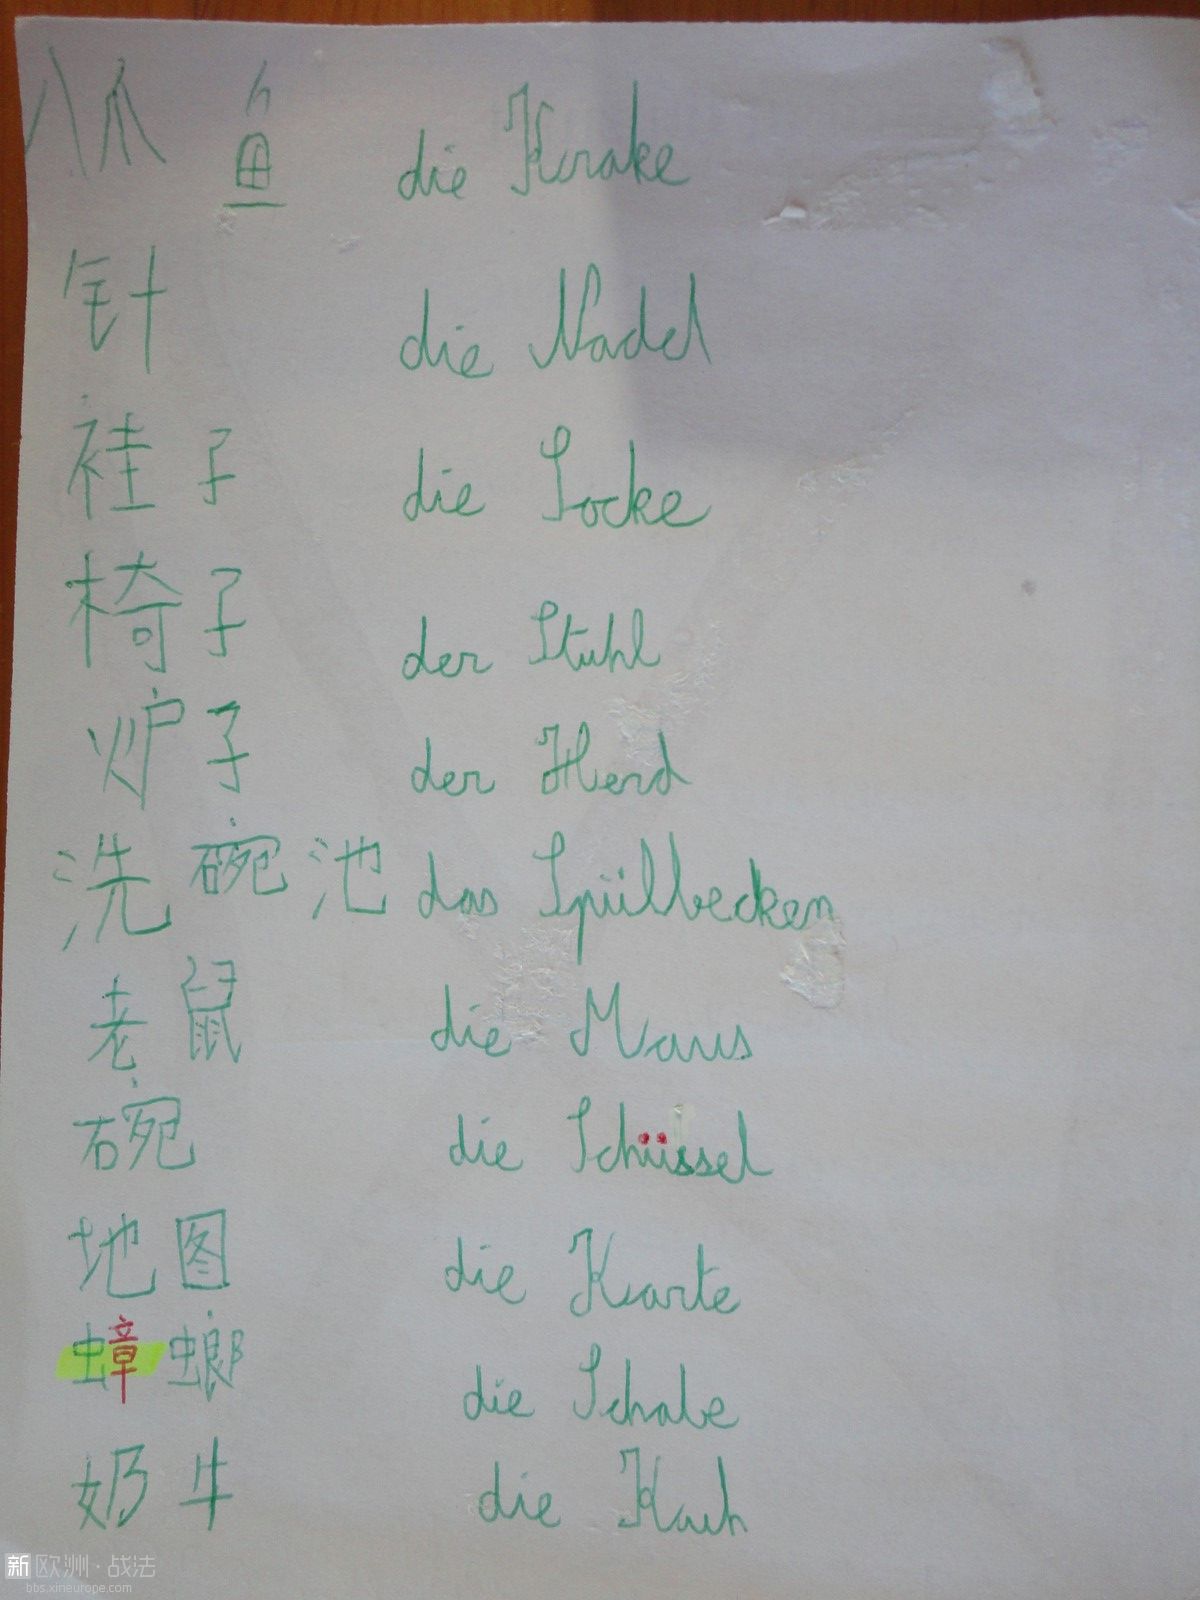 八爪鱼 die Krake
针 die Nadel
袿子 die Socke
椅子 der Stuhl
炉子 der Herd
洗碗池 das Spülbecken
老鼠 die Maus
碗 die Schüssel
地图 die Karte
蟑螂 die Schabe
奶牛 die Kuh
新欧洲·战法
bbs.xineurope.com